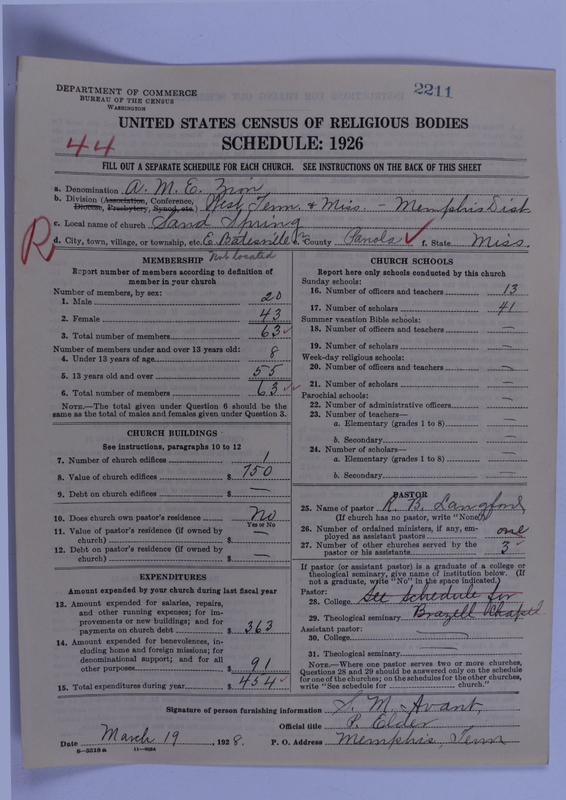 2211
DEPARTMENT OF COMMERCE
BUREAU OF THE CENSUS
WASHINGTON
UNITED STATES CENSUS OF RELIGIOUS BODIES
44
SCHEDULE: 1926
FILL OUT A SEPARATE SCHEDULE FOR EACH CHURCH. SEE INSTRUCTIONS ON THE BACK OF THIS SHEET
a. Denomination A. M. E. Zion
b. Division (Association, Conference, Diocese, Presbytery, Synod, etc.) West Tenn. & Miss. - Memphis Dist
c. Local name of church Sand Spring
R
d. City, town, village, or township, etc. E. Batesville e. County Panola f. State Miss.
Not located
MEMBERSHIP
Report number of members according to definition of
member in your church
Number of members, by sex:
1. Male 20
2. Female 43
3. Total number of members 63
Number of members under and over 13 years old:
4. Under 13 years of age 8
5. 13 years old and over 55
6. Total number of members 63
NOTE.—The total given under Question 6 should be the
same as the total of males and females given under Question 3.
CHURCH BUILDINGS
See instructions, paragraphs 10 to 12
7. Number of church edifices 1
8. Value of church edifices $ 750
9. Debt on church edifices $ —
10. Does church own pastor's residence No
Yes or No
11. Value of pastor's residence (if owned by
church) $ —
12. Debt on pastor's residence (if owned by
church) $ —
EXPENDITURES
Amount expended by your church during last fiscal year
13. Amount expended for salaries, repairs,
and other running expenses; for im-
provements or new buildings; and for
payments on church debt $ 363
14. Amount expended for benevolences, in-
cluding home and foreign missions; for
denominational support; and for all
other purposes $ 91
15. Total expenditures during year $ 454
CHURCH SCHOOLS
Report here only schools conducted by this church
Sunday schools:
16. Number of officers and teachers 13
17. Number of scholars 41
Summer vacation Bible schools:
18. Number of officers and teachers —
19. Number of scholars —
Week-day religious schools:
20. Number of officers and teachers —
21. Number of scholars —
Parochial schools:
22. Number of administrative officers —
23. Number of teachers—
a. Elementary (grades 1 to 8) —
b. Secondary —
24. Number of scholars—
a. Elementary (grades 1 to 8) —
b. Secondary —
PASTOR
25. Name of pastor R. B. Langford
(If church has no pastor, write "None")
26. Number of ordained ministers, if any, em-
ployed as assistant pastors one
27. Number of other churches served by the
pastor or his assistants 3
If pastor (or assistant pastor) is a graduate of a college or
theological seminary, give name of institution below. (If
not a graduate, write "No" in the space indicated.)
Pastor:
28. College See schedule for
29. Theological seminary Brazell Chapel
Assistant pastor:
30. College —
31. Theological seminary
NOTE.—Where one pastor serves two or more churches,
Questions 28 and 29 should be answered only on the schedule
for one of the churches; on the schedules for the other churches,
write "See schedule for church."
Signature of person furnishing information S. M. Avant,
Official title P. Elder
Date March 19, 1928. P. O. Address Memphis, Tenn
8—5518a 11—9284